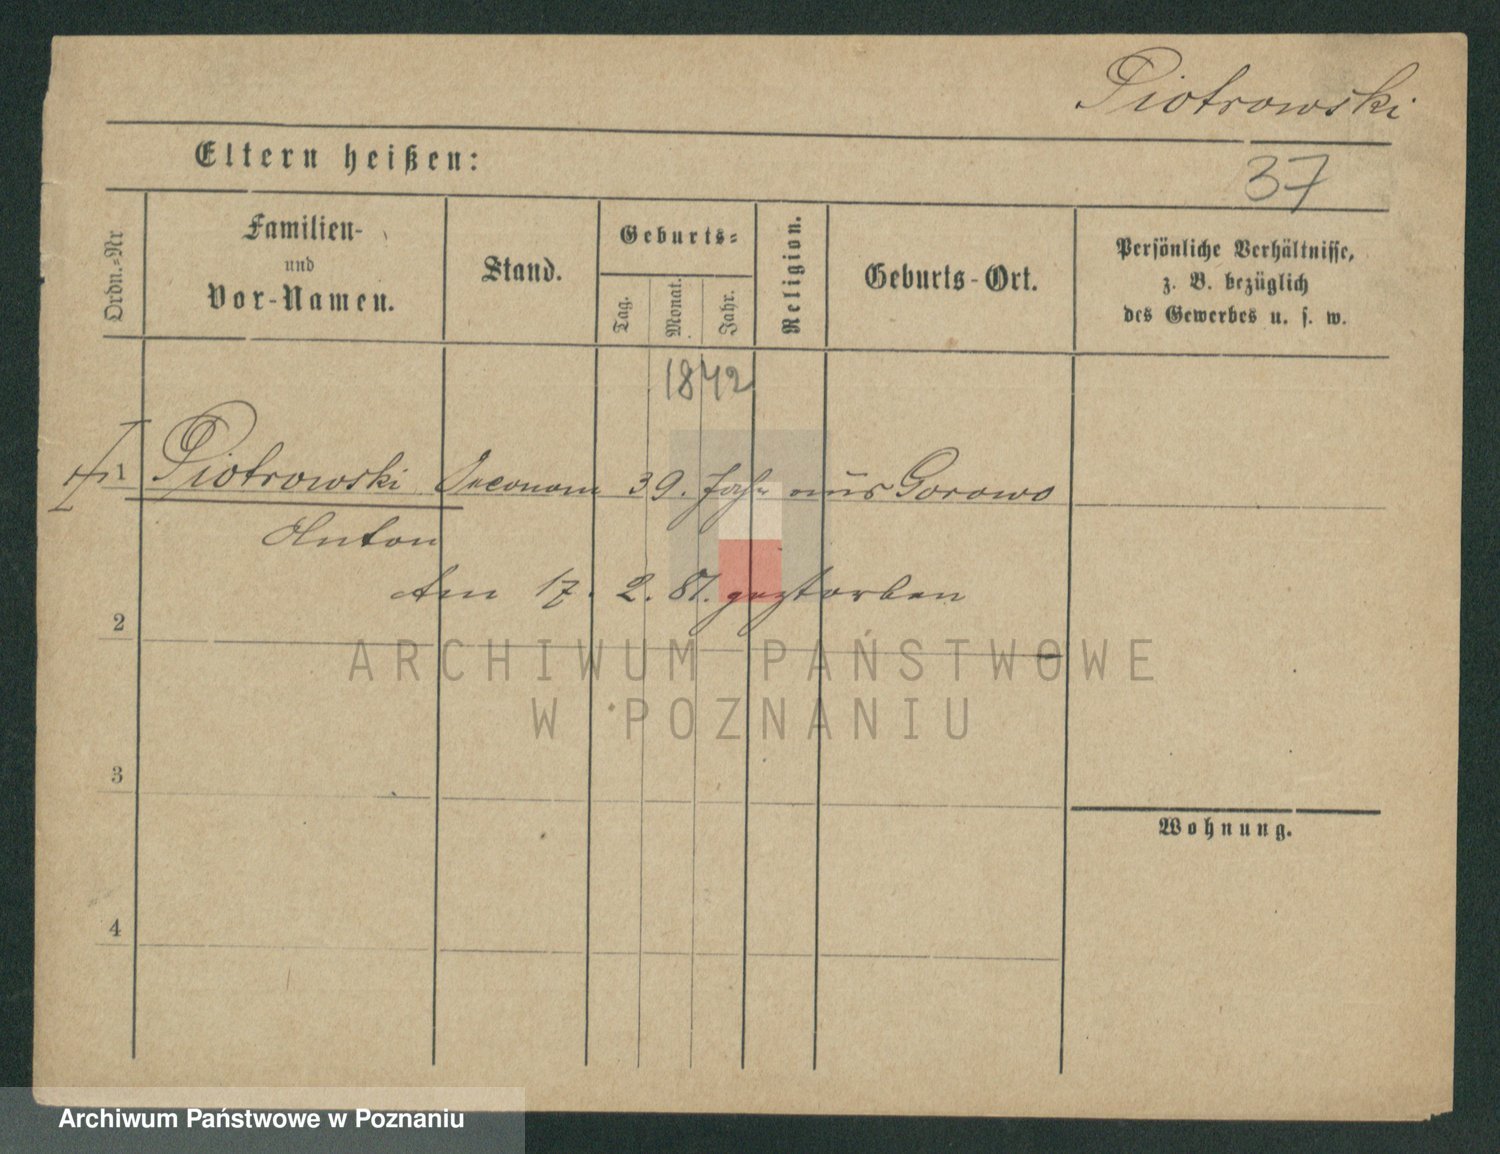 Piotrowski
Eltern heißen:
37
Ordn.-Nr
Familien-
und
Vor-Namen.
Stand.
Geburts-
Tag.
Monat.
Jahr.
Religion.
Geburts-Ort.
Persönliche Verhältnisse,
z. B. bezüglich
des Gewerbes u. s. w.
1842
1 Piotrowski Oeconom 39. Jahr aus Gorowo
Anton
Am 17. 2. 81. gestorben
2
ARCHIWUM PAŃSTWOWE
W POZNANIU
3
Wohnung.
4
Archiwum Państwowe w Poznaniu